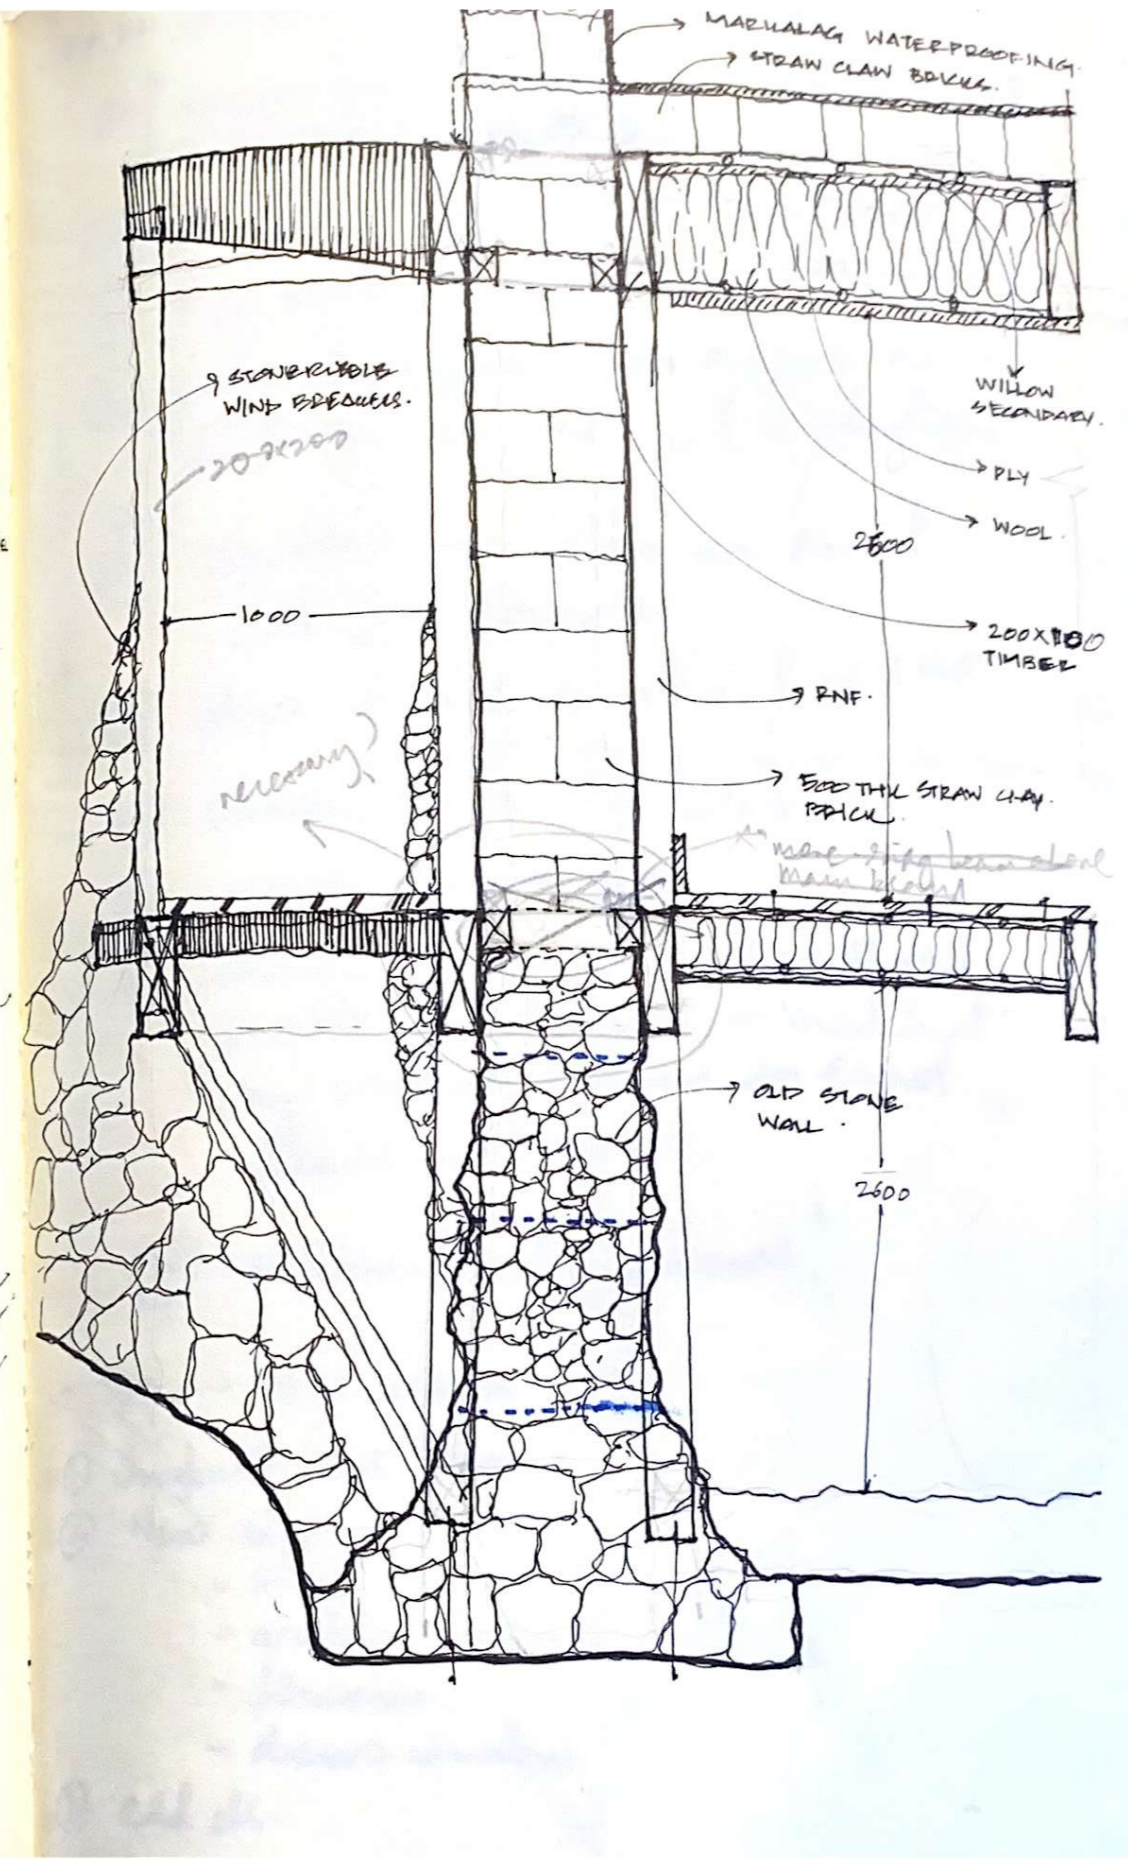 MARKALAG WATERPROOFING.
STRAW CLAW BRICKS.
STONE RUBBLE
WIND BREAKERS.
200x200
WILLOW
SECONDARY.
PLY
WOOL.
1000
200X100
TIMBER
RNF.
necessary?
500 THK STRAW CLAY.
BRICK.
main beam
OLD STONE
WALL.
2600